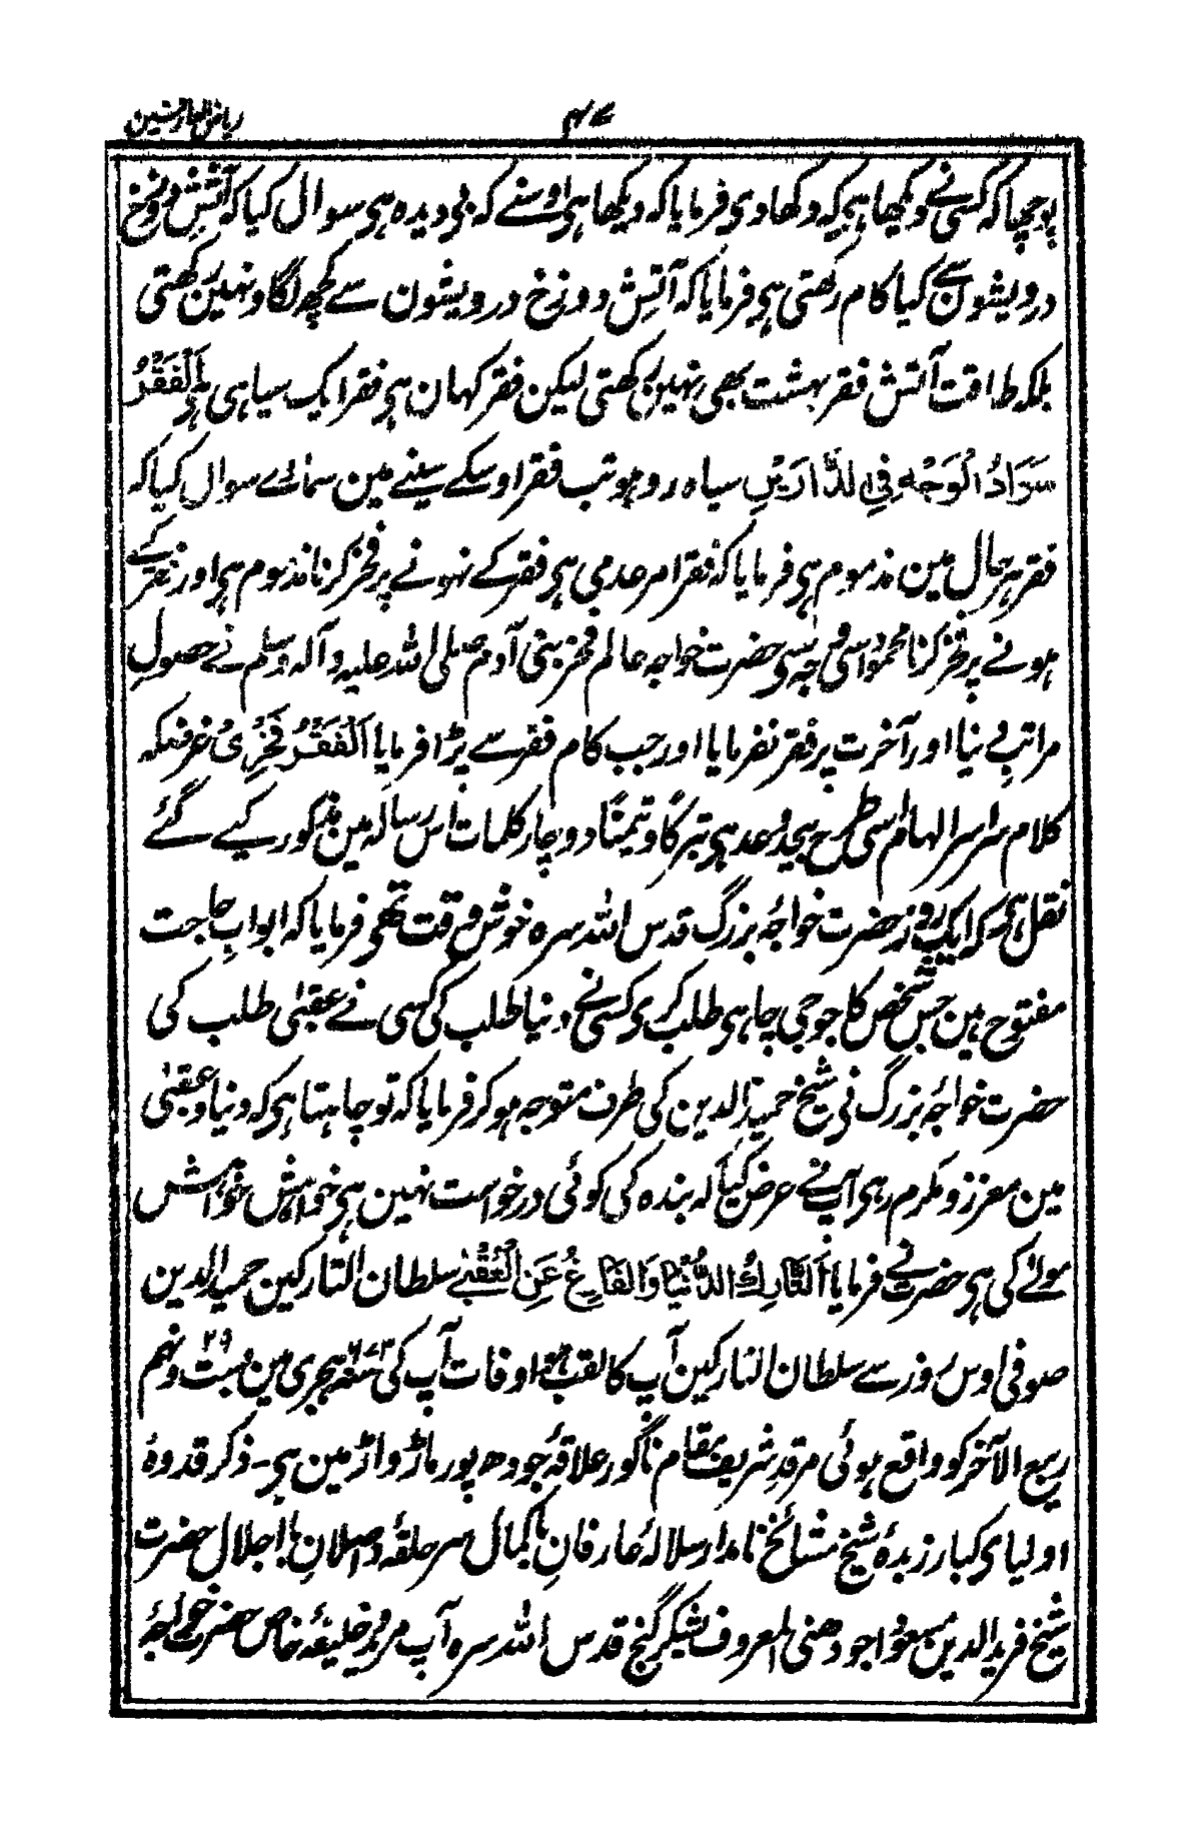 ریاض العارفین
۴۷
پوچھا کہ کسی نے دیکھا ہی کہ دکھا دی فرمایا کہ دیکھا ہی اوسنے کہ بی دیدہ ہی سوال کیا کہ آتشِ دوزخ
درویشون سے کیا کام رکھتی ہی فرمایا کہ آتشِ دوزخ درویشون سے کچھ لگاو نہین رکھتی
بلکہ طاقت آتش فقر بہشت بھی نہین رکھتی لیکن فقر کہان ہی فقر ایک سیاہی ہی اَلْفَقْرُ
سَوَادُ الْوَجْهِ فِی الدَّارَیْنِ سیاہ رو ہو تب فقر اوسکے سینے مین سمائے سوال کیا کہ
فقر ہر حال مین مذموم ہی فرمایا کہ فقر امر عدمی ہی فقر کے نہونے پر فخر کرنا مذموم ہی اور فقر کے
ہونے پر فخر کرنا محمود اسی وجہ سی حضرت خواجہ عالم فخر بنی آدم صلی اللہ علیہ وآلہ وسلم نے حصولِ
مراتبِ دنیا اور آخرت پر فقر نفرمایا اور جب کام فقر سے پڑا فرمایا اَلْفَقْرُ فَخْرِیْ غرضکہ
کلام سراسر الہام اسی طرح بیحد وعد ہی تبرکًا وتیمنًا دو چار کلمات اس رسالہ مین مذکور کیے گئے
نقل ہی کہ ایک روز حضرت خواجۂ بزرگ قدس اللہ سرہ خوش وقت تھی فرمایا کہ ابوابِ حاجت
مفتوح ہین جس شخص کا جو جی چاہی طلب کری کسی نے دنیا طلب کی کسی نے عقبٰی طلب کی
حضرت خواجۂ بزرگ نی شیخ حمید الدین کی طرف متوجہ ہو کر فرمایا کہ تو چاہتا ہی کہ دنیا وعقبٰی
مین معزز ومکرم رہی آپنے عرض کیا کہ بندہ کی کوئی درخواست نہین ہی خواہش خواہش
مولےٰ کی ہی حضرت نے فرمایا اَلتَّارِكُ الدُّنْیَا وَالْفَارِغُ عَنِ الْعُقْبٰے سلطان التارکین حمید الدین
صوفی اوس روز سے سلطان التارکین آپ کا لقب ہوا وفات آپ کی ۶۷۳ سنہ ہجری مین بست ونہم ۲۹
ربیع الآخر کو واقع ہوئی مرقدِ شریف بمقام ناگور علاقۂ جودھپور ماڑواڑ مین ہی۔ ذکر قدوۂ
اولیای کبار زبدۂ شیخ مشائخ نامدار سلالۂ عارفانِ باکمال سرحلقۂ واصلانِ با اجلال حضرت
شیخ فرید الدین مسعود اجودھنی المعروف بشکر گنج قدس اللہ سرہ آپ مرید وخلیفۂ خاص حضرت خواجۂ